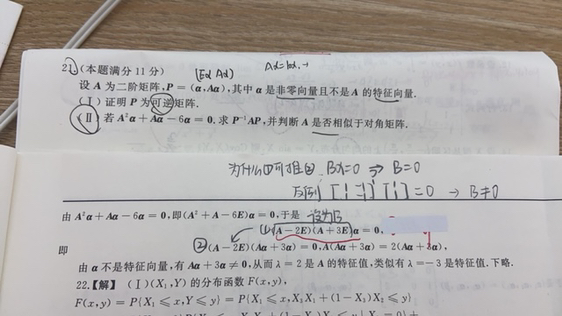 (Eα Aα) Aα=kα.
21.(本题满分 11 分)
设 A 为二阶矩阵,P=(α,Aα),其中 α 是非零向量且不是 A 的特征向量.
(Ⅰ)证明 P 为可逆矩阵.
(Ⅱ)若 A²α+Aα-6α=0,求 P⁻¹AP,并判断 A 是否相似于对角矩阵.
为什么①可推②. Bα=0 ⇒ B=0
反例 =0 → B≠0
由 A²α+Aα-6α=0,即(A²+A-6E)α=0,于是 设为B
(1)(A-2E)(A+3E)α=0,
即 ②(A-2E)(Aα+3α)=0,A(Aα+3α)=2(Aα+3α),
由 α 不是特征向量,有 Aα+3α≠0,从而 λ=2 是 A 的特征值,类似有 λ=-3 是特征值.下略.
22.【解】 (Ⅰ)(X₁,Y)的分布函数 F(x,y),
F(x,y)=P{X₁≤x,Y≤y}=P{X₁≤x,X₃X₁+(1-X₃)X₂≤y}